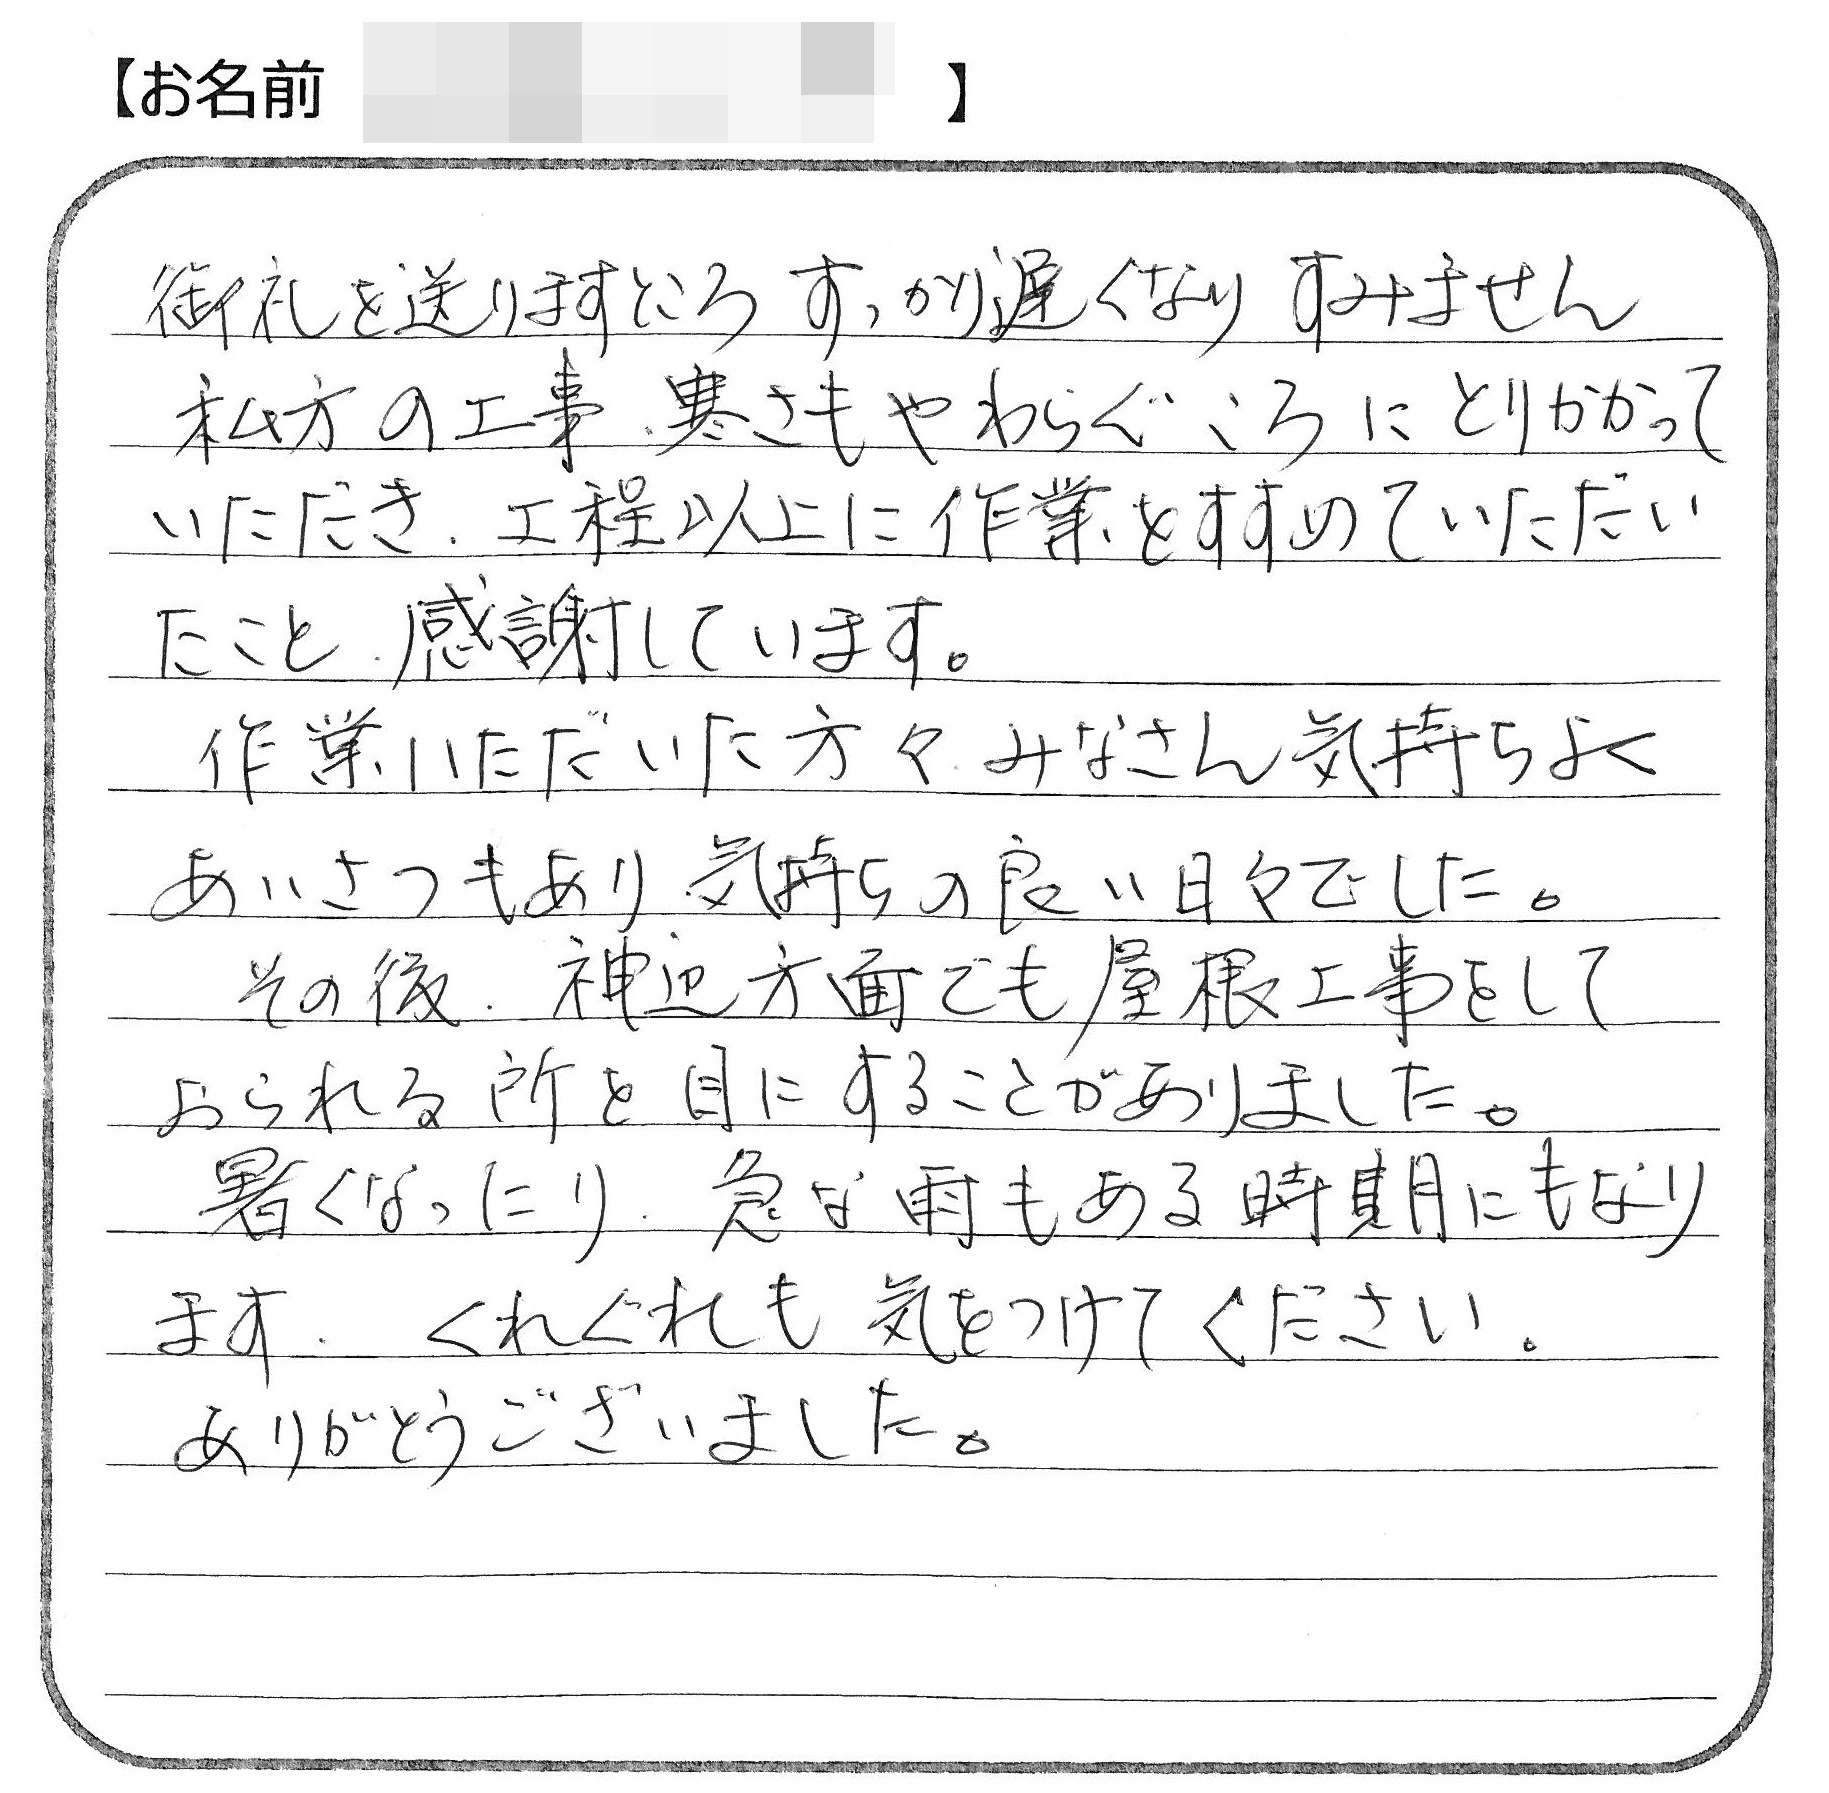 【お名前 】
御礼を送りますところ すっかり遅くなり すみません
私方の工事、寒さもやわらぐころにとりかかって
いただき、工程以上に作業をすすめていただい
たこと、感謝しています。
作業いただいた方々、みなさん気持ちよく
あいさつもあり、気持ちの良い日々でした。
その後、神辺方面でも屋根工事をして
おられる所を目にすることがありました。
暑くなったり、急な雨もある時期にもなり
ます、くれぐれも気をつけてください。
ありがとうございました。